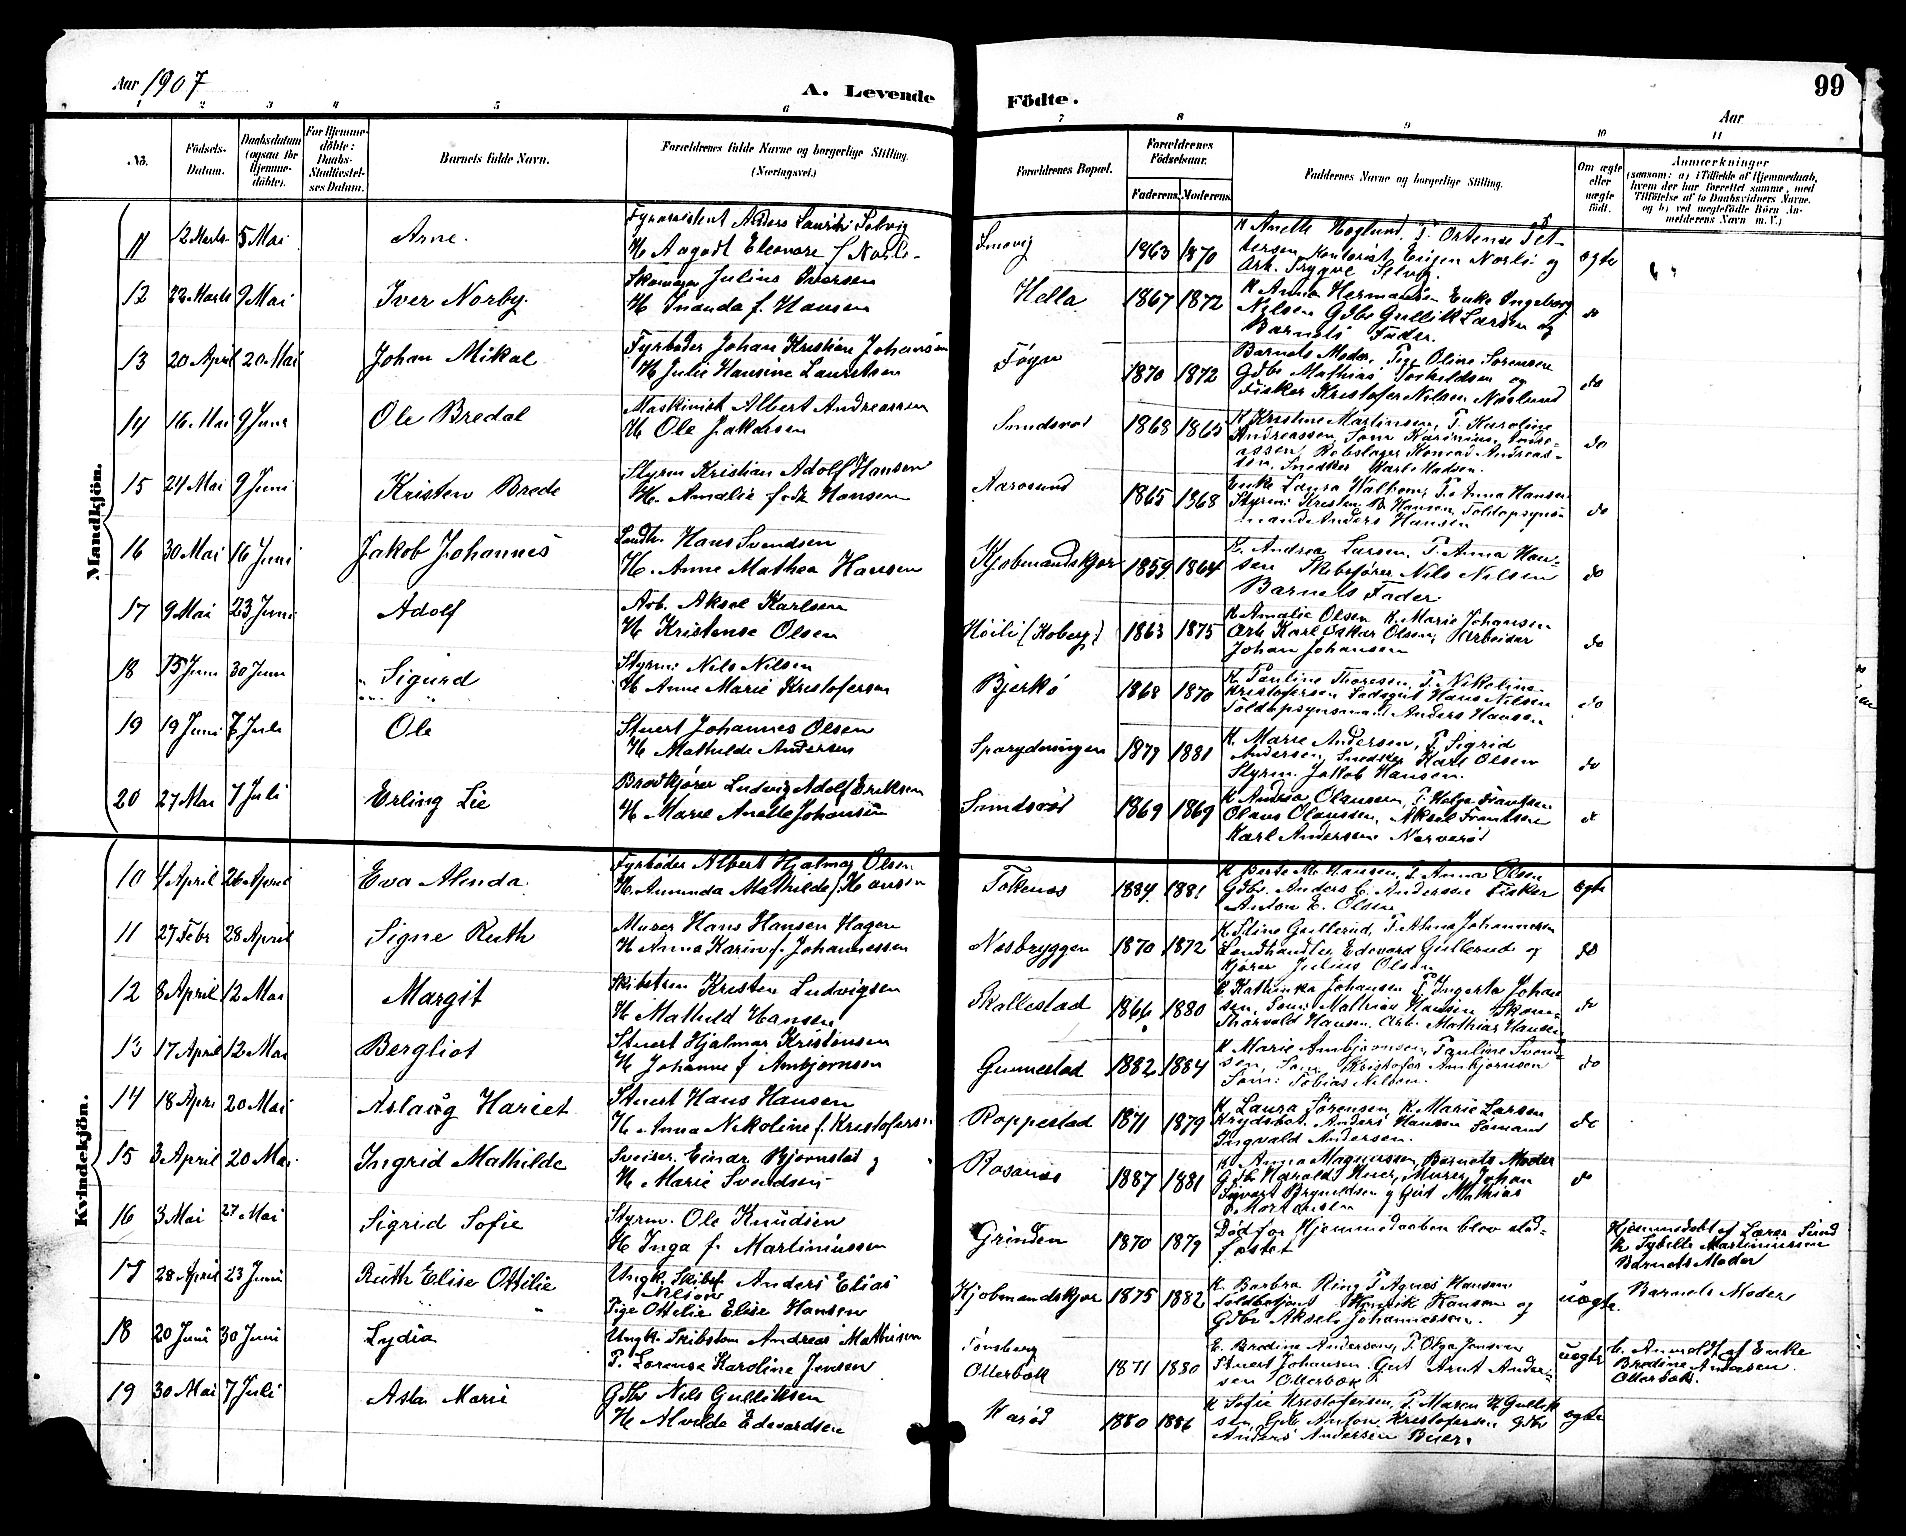 Aar 1907
A. Levende Födte.
99
Aar
1 2 3 4 5 6 7 8 9 10 11
No.
Födsels-Datum.
Daabsdatum (ogsaa for Hjemmedöbte).
For Hjemmedöbte: Daabs-Stadfæstelses Datum.
Barnets fulde Navn.
Forældrenes fulde Navne og borgerlige Stilling. (Næringsvei.)
Forældrenes Bopæl.
Forældrenes Födselsaar.
Faderens Moderens
Faddernes Navne og borgerlige Stilling.
Om ægte eller uægte födt.
Anmærkninger
(saasom: a) i Tilfælde af Hjemmedaab, hvem der har forrettet samme, med Tilföielse af to Daabsvidners Navne, og b) ved uægtefödte Börn Anmelderens Navn m. V.)
Mandkjön.
11 2 Marts 5 Mai Arne. Anders Selvig
H Aagodt Eleonore f
1863 1870 K Anette Høglund, og
Ark. Trygve Selvig. ægte
12 22 Marts 9 Mai Iver Norby. Skomager Julius Iversen
H f. Hansen
Hella 1867 1872 K Anna Hermansen Enke Ingeborg
Nilsen Gdbr Gullik Larsen og
Barnets Fader. do
13 20 April 20 Mai Johan Mikal Fyrbøder Johan Kristian Johansen
H Julie Hansine Lauritsen
1870 1872 Barnets Moder, Pige Oline Sørensen
Gdbr Mathias Torkildsen og
Fisker Kristofer Nilsen do
14 16 Mai 9 Juni Ole Bredal Maskinist Albert Andreassen
H Ole
Sundsrød 1868 1865 K Kristine Martinsen, P. Karoline
Andreassen, Konrad Andreas-
sen, Snedker do
15 21 Mai 9 Juni Kristen Brede Styrm Kristian Adolf Hansen
H. Amalie født Hansen
Aarøsund 1865 1868 Enke Laura P. Anna Hansen
Styrm: Kristen B. Hansen, Toldopsyns-
mand Anders Hansen do
16 30 Mai 16 Juni Jakob Johannes Landh. Hans Svendsen
H. Anne Mathea Hansen
Kjøbmandskjær 1859 1864 K. Andrea Larsen, P. Anna Han-
sen Skibsfører Nils Nilsen
Barnets Fader do
17 9 Mai 23 Juni Adolf Arb. Aksel Karlsen
H Kristense Olsen
Høili (Hoberg) 1863 1875 K Amalie Olsen K. Marie Johansen
Arb Karl Oskar Olsen, Arbeider
Johan Johansen do
18 15 Juni 30 Juni Sigurd Styrm: Nils Nilsen
H Anne Marie Kristofersen
Bjerkø 1868 1870 K. Pauline Thoresen, P. Nikoline
Kristofersen Hans Nilsen
Toldopsynsmand Anders Hansen do
19 19 Juni 7 Juli Ole Stuert Johannes Olsen
H Mathilde Andersen
1879 1881 K. Marie Andersen, P. Sigrid
Andersen, Snedker Karl Olsen
Styrm. Jakob Hansen. do
20 27 Mai 7 Juli Erling Lie Brødkjører Ludvig Adolf Eriksen
H Marie Anette Johansen
Sundsrød 1869 1869 K Andrea Olaussen, P. Helga Frantsen
Olaus Olaussen, Aksel Frantsen
Karl Andersen Narverød do
Kvindekjön.
10 4 April 26 April Eva Alinda Fyrbøder Albert Hjalmar Olsen
H. Amunda Mathilde f. Hansen
1884 1881 K Berte M. Hansen, P Anna Olsen
Gdbr. Anders C. Andersen Fisker
Anton E. Olsen ægte
11 27 Febr 28 April Signe Ruth Murer Hans Hansen Hagen
H Anna Karin f. Johannessen
Nesbryggen 1870 1872 K. Stina Gullerud, P. Alma Johannesen
Landhandler Edevard Gullerud og
Kjører Julius Olsen do
12 8 April 12 Mai Margit Skibstøm Kristen Ludvigsen
H Mathild Hansen
Skallestad 1866 1880 K Kathinka Johansen P Ingerta Johan
sen, Som: Mathias Hansen,
Thorvald Hansen. Arb. Mathias Hansen do
13 17 April 12 Mai Bergliot Stuert Hjalmar Kristensen
H Johanne f Ambjørnsen
Gunnestad 1882 1884 K Marie Ambjørnsen, Pauline Svend-
sen, Søm Kristofer Ambjørnsen
Søm: Tobias Nilsen. do
14 18 April 20 Mai Aslaug Hariet Stuert Hans Hansen
H. Anna Nikoline f. Kristofersen
Roppestad 1871 1879 K Laura Sørensen, K. Marie Larsen
Anders Hansen Sømand
Ingvald Andersen. do
15 3 April 20 Mai Ingrid Mathilde Sveiser. Einar Bjørnstad og
H. Marie Svendsen
Rosanes 1887 1881 K. Anna Magnussen, Barnets Moder
Gdbr Harald Huer, Murer Johan
Sigvart Bryneldsen og Gut Mathias
Mortensen do
16 3 Mai 27 Mai Sigrid Sofie Styrm. Ole Knudsen
H Inga f. Martiniussen
Grinden 1870 1879 Død før Hjemmedaaben blev stad-
fæstet Hjemmedøbt af Lærer Sund
K Sybille Martiniussen
Barnets Moder
17 28 April 23 Juni Ruth Elise Ottilie Ungk. Skibsf. Anders Elias
Nilsen
Pige Ottilie Elise Hansen
Kjøbmandskjær 1875 1882 K. Barbra Ring P Agnes Hansen
Toldbetjent Henrik Hansen og
Gdbr Aksel Johannessen. uægte. Barnets Moder
18 20 Juni 30 Juni Lydia Ungk. Skibstøm Andreas Mathisen
P. Lorense Karoline Jensen
Tønsberg
Otterbæk 1871 1880 E. Bredine Andersen, P. Olga Jensen
Stuert Johansen. Gut Arnt Ander-
sen Otterbæk uægte Anmeldt af Enke
Bredine Andersen.
Otterbæk.
19 30 Mai 7 Juli Asta Marie Gdbr Nils Gulliksen
H Alvilde Edevardsen
Karød 1880 1886 K Sofie Kristofersen, P. Maren K Gullik
sen, Gdb Anton Kristofersen Gdbr
Anders Andersen Buer. ægte